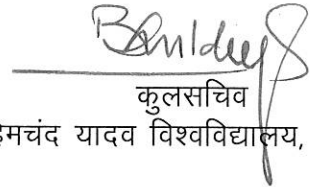 कुलसचिव
हेमचंद यादव विश्वविद्यालय,